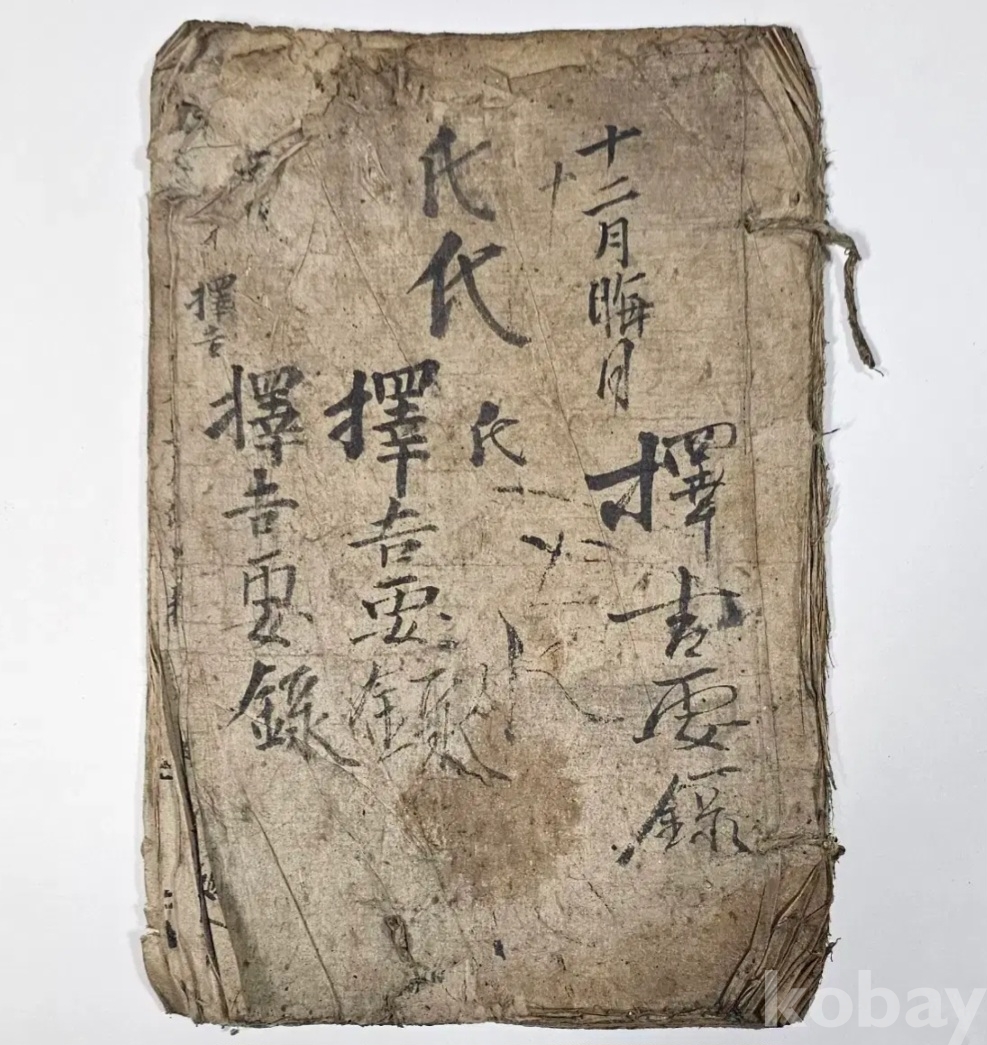 十二月晦月
擇吉要錄
十
代
代
代
擇吉要錄
擇吉要錄
擇吉
kobay